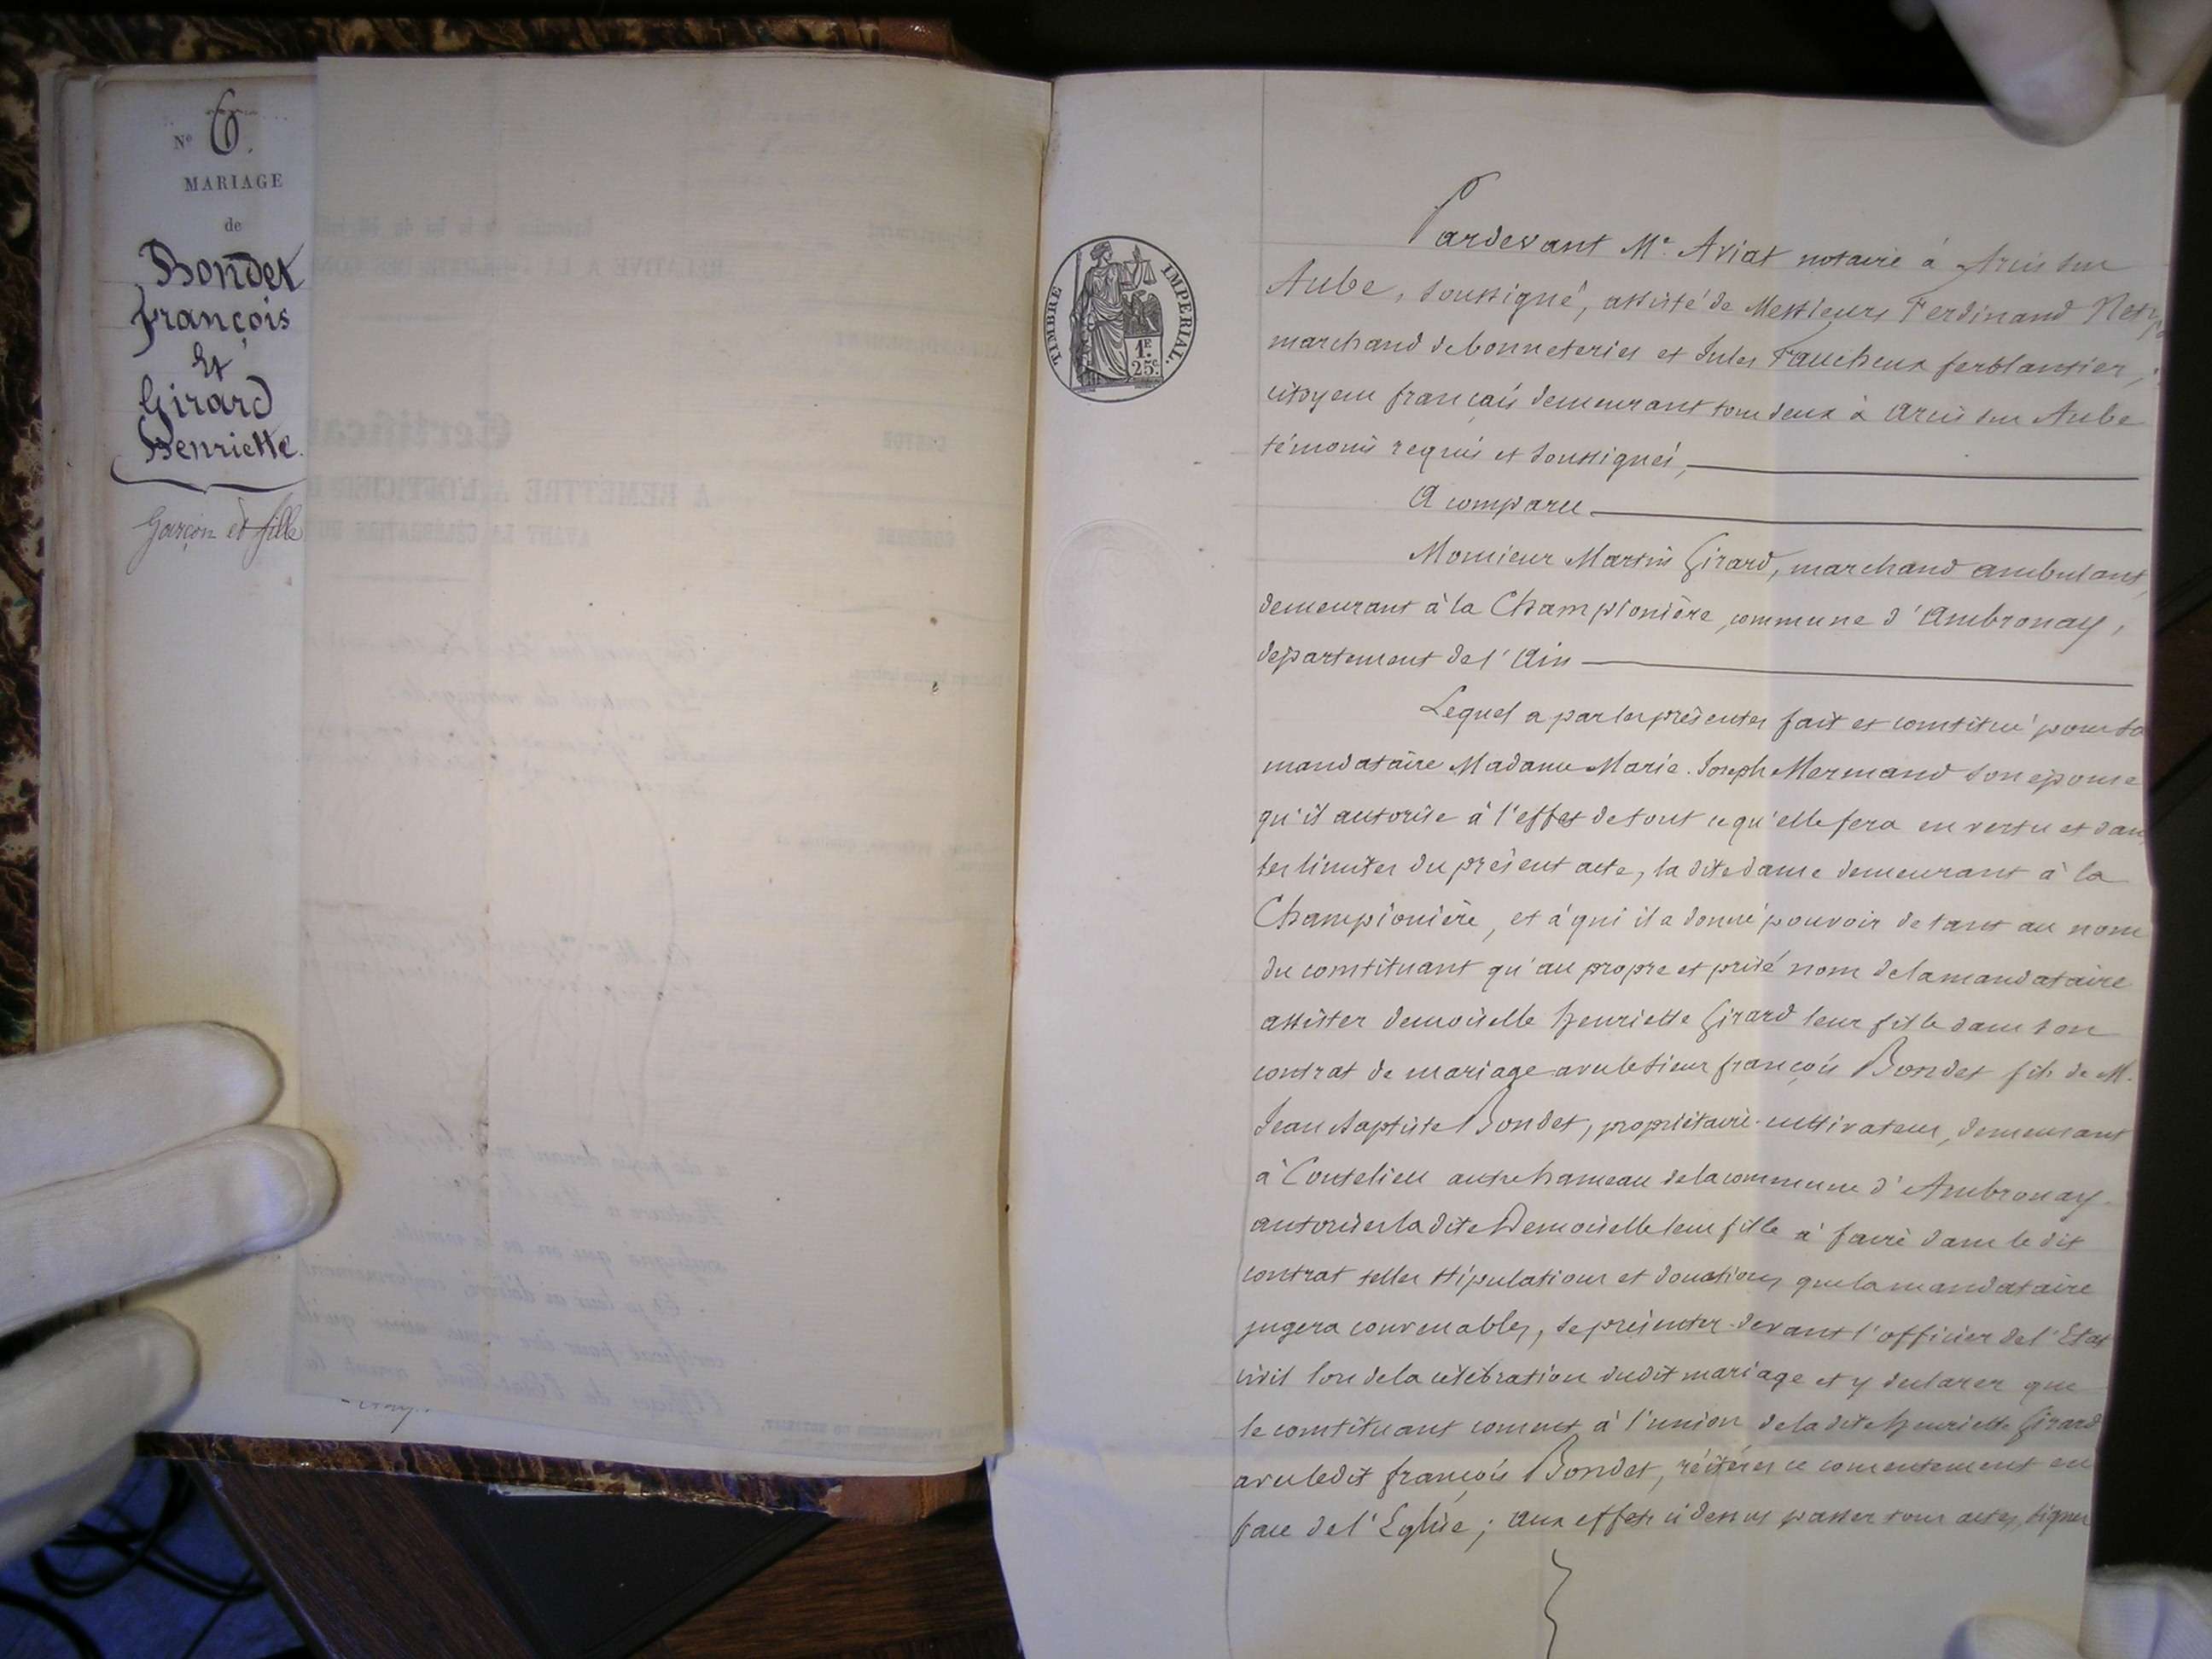 Nº 6.
MARIAGE
de
Bondet
françois
Et
Girard
Henriette.
Garçon et fille
TIMBRE IMPERIAL.
1F.
25c.
Pardevant Me. Aviat notaire à Arcis sur
Aube, soussigné, assisté de Messieurs Ferdinand
marchand de bonneteries et Jules Faucheux ferblantier,
citoyens français demeurant tous deux à Arcis sur Aube
témoins requis et soussignés,
A comparu
Monsieur Martin Girard, marchand ambulant,
demeurant à la Championière, commune d'Ambronay,
département de l'Ain
Lequel a par les présentes fait et constitué pour sa
mandataire Madame Marie-Joseph Mermand son épouse
qu'il autorise à l'effet de tout ce qu'elle fera en vertu et dans
les limites du présent acte, la dite dame demeurant à la
Championière, et à qui il a donné pouvoir de tant au nom
du constituant qu'au propre et privé nom de la mandataire
assister demoiselle henriette Girard leur fille dans son
contrat de mariage avec le sieur françois Bondet fils de M.
Jean Baptiste Bondet, propriétaire-cultivateur, demeurant
à Coutelieu autre hameau de la commune d'Ambronay-
autoriser la dite Demoiselle leur fille à faire dans le dit
contrat telles stipulations et donations que la mandataire
jugera convenables, se présenter devant l'officier de l'Etat
civil lors de la célébration dudit mariage et y déclarer que
le constituant consent à l'union de la dite henriette Girard
avec ledit françois Bondet, réitérer ce consentement en
face de l'Eglise; aux effets ci dessus passer tous actes, signer